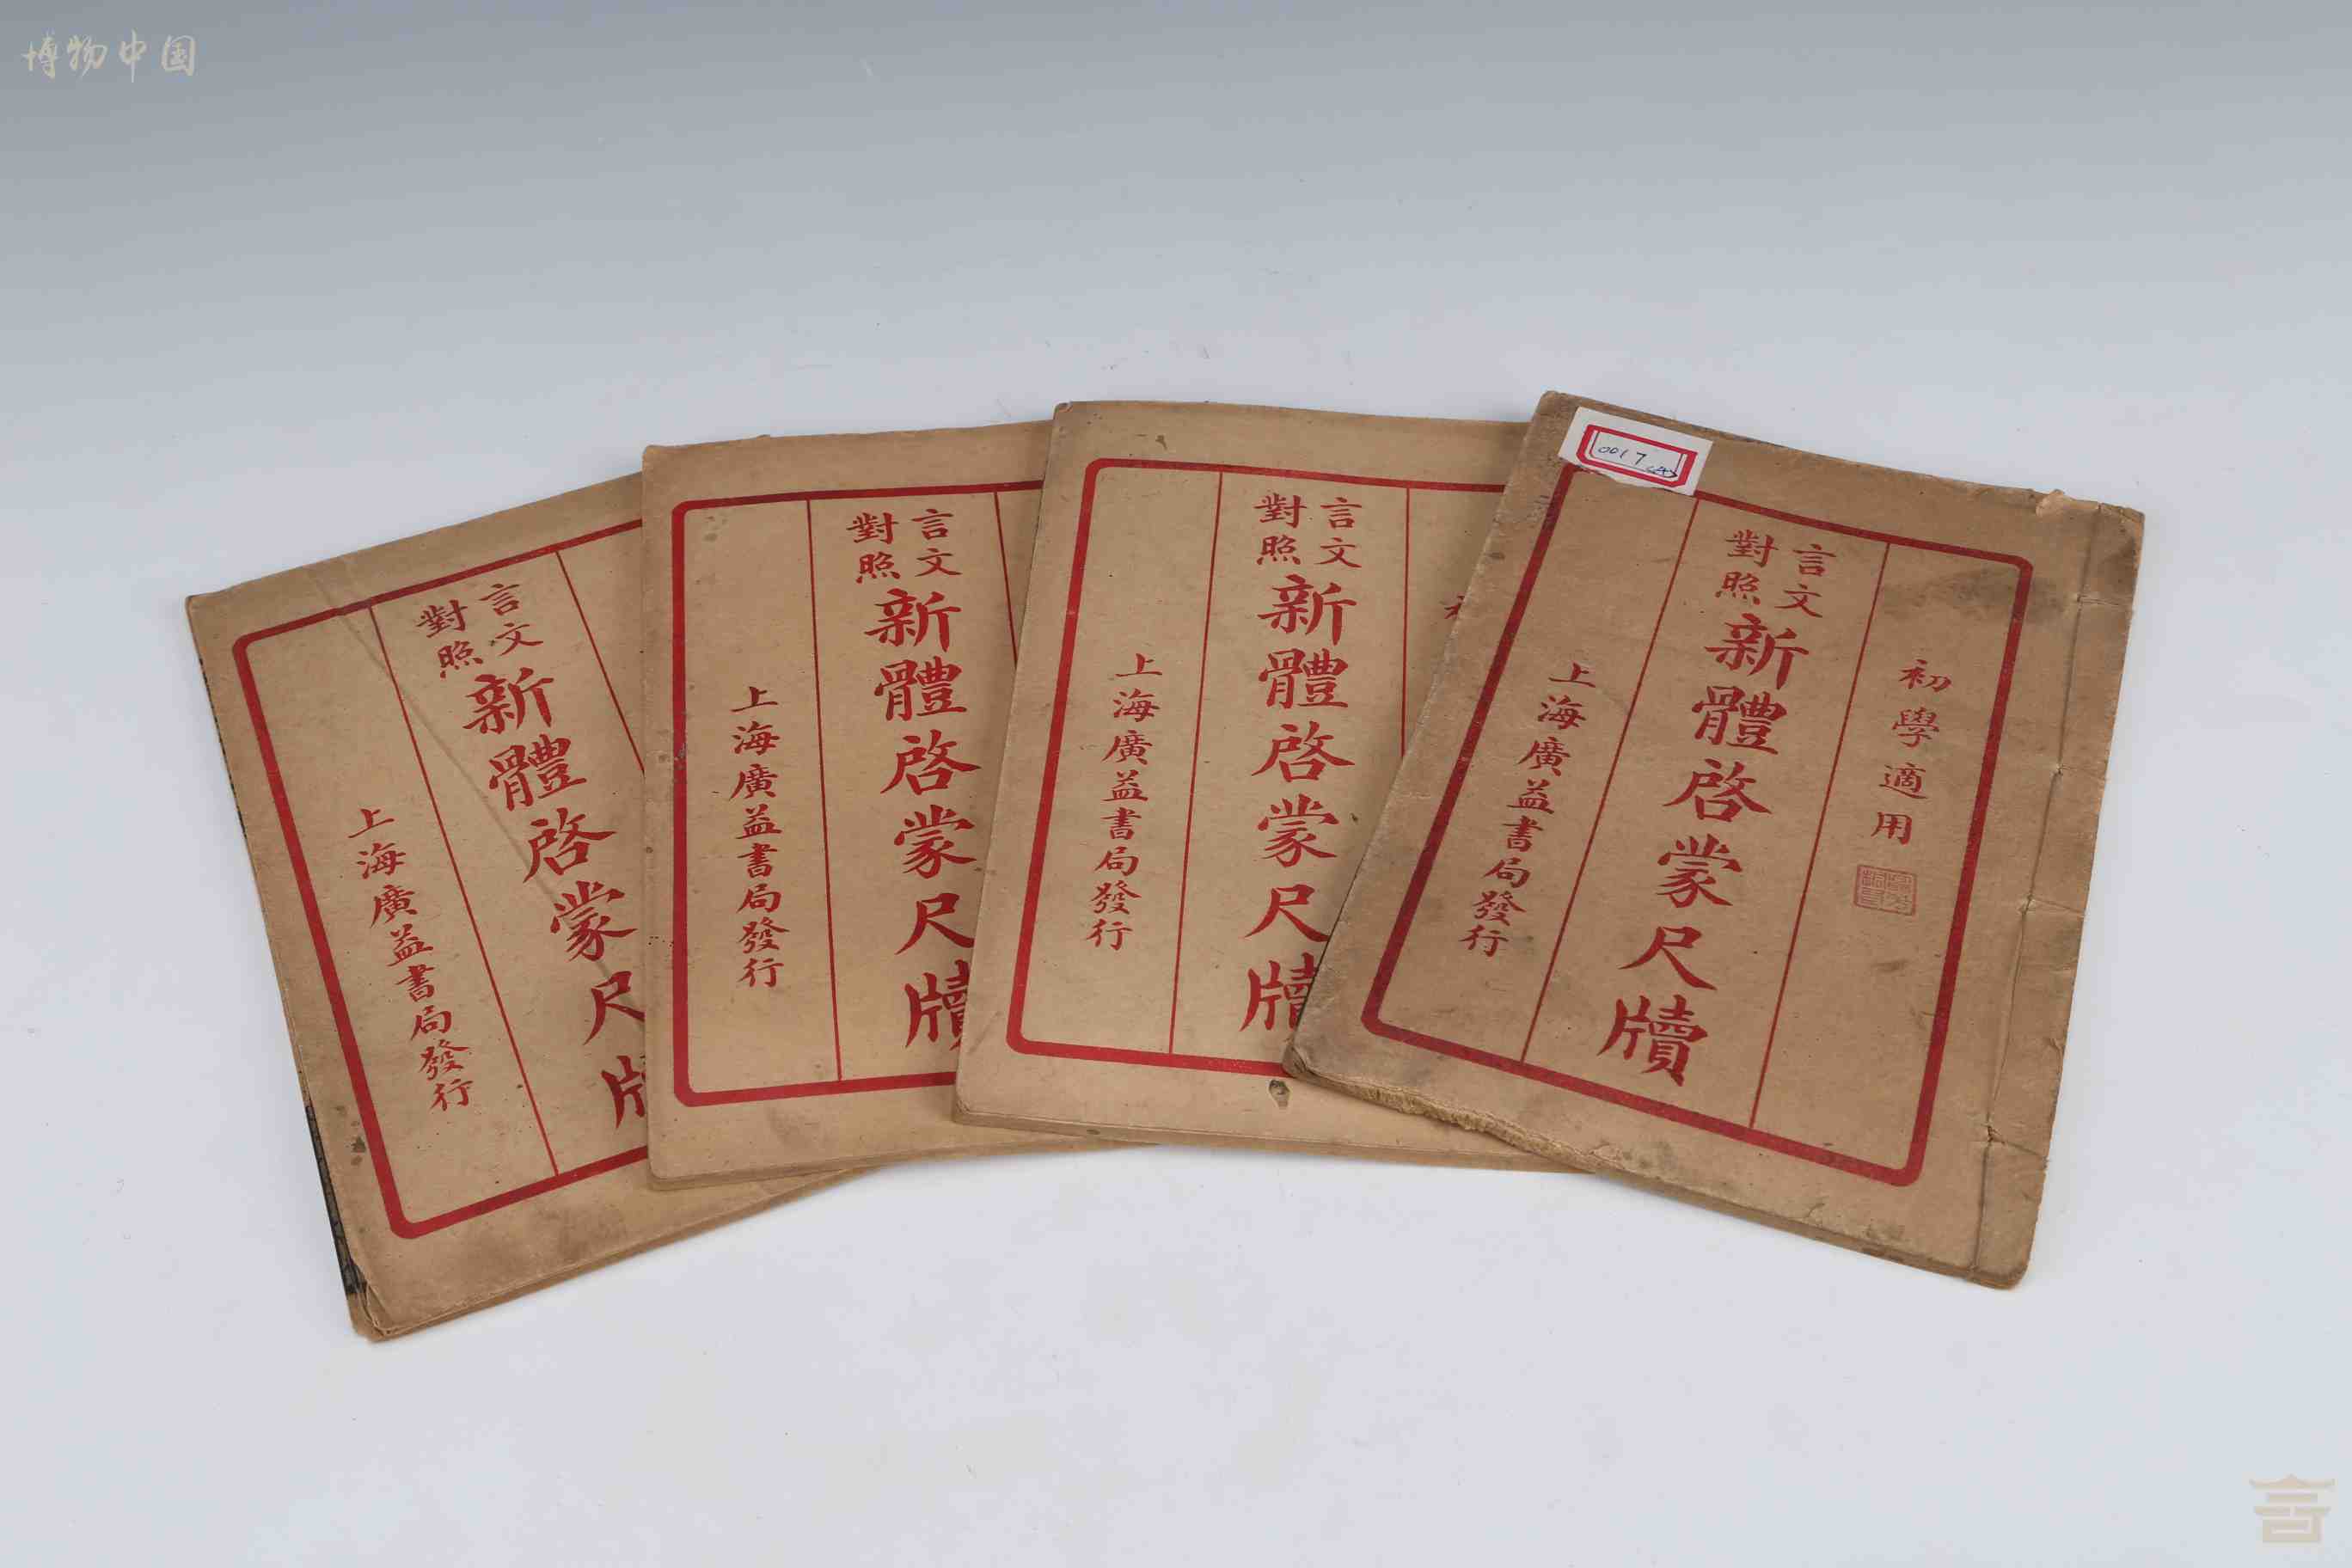 博物中国
言文
對照
新體啓蒙尺
上海廣益書局發行
言文
對照
新體啓蒙尺牘
上海廣益書局發行
言文
對照
新體啓蒙尺牘
上海廣益書局發行
0017
初學適用
言文
對照
新體啓蒙尺牘
上海廣益書局發行